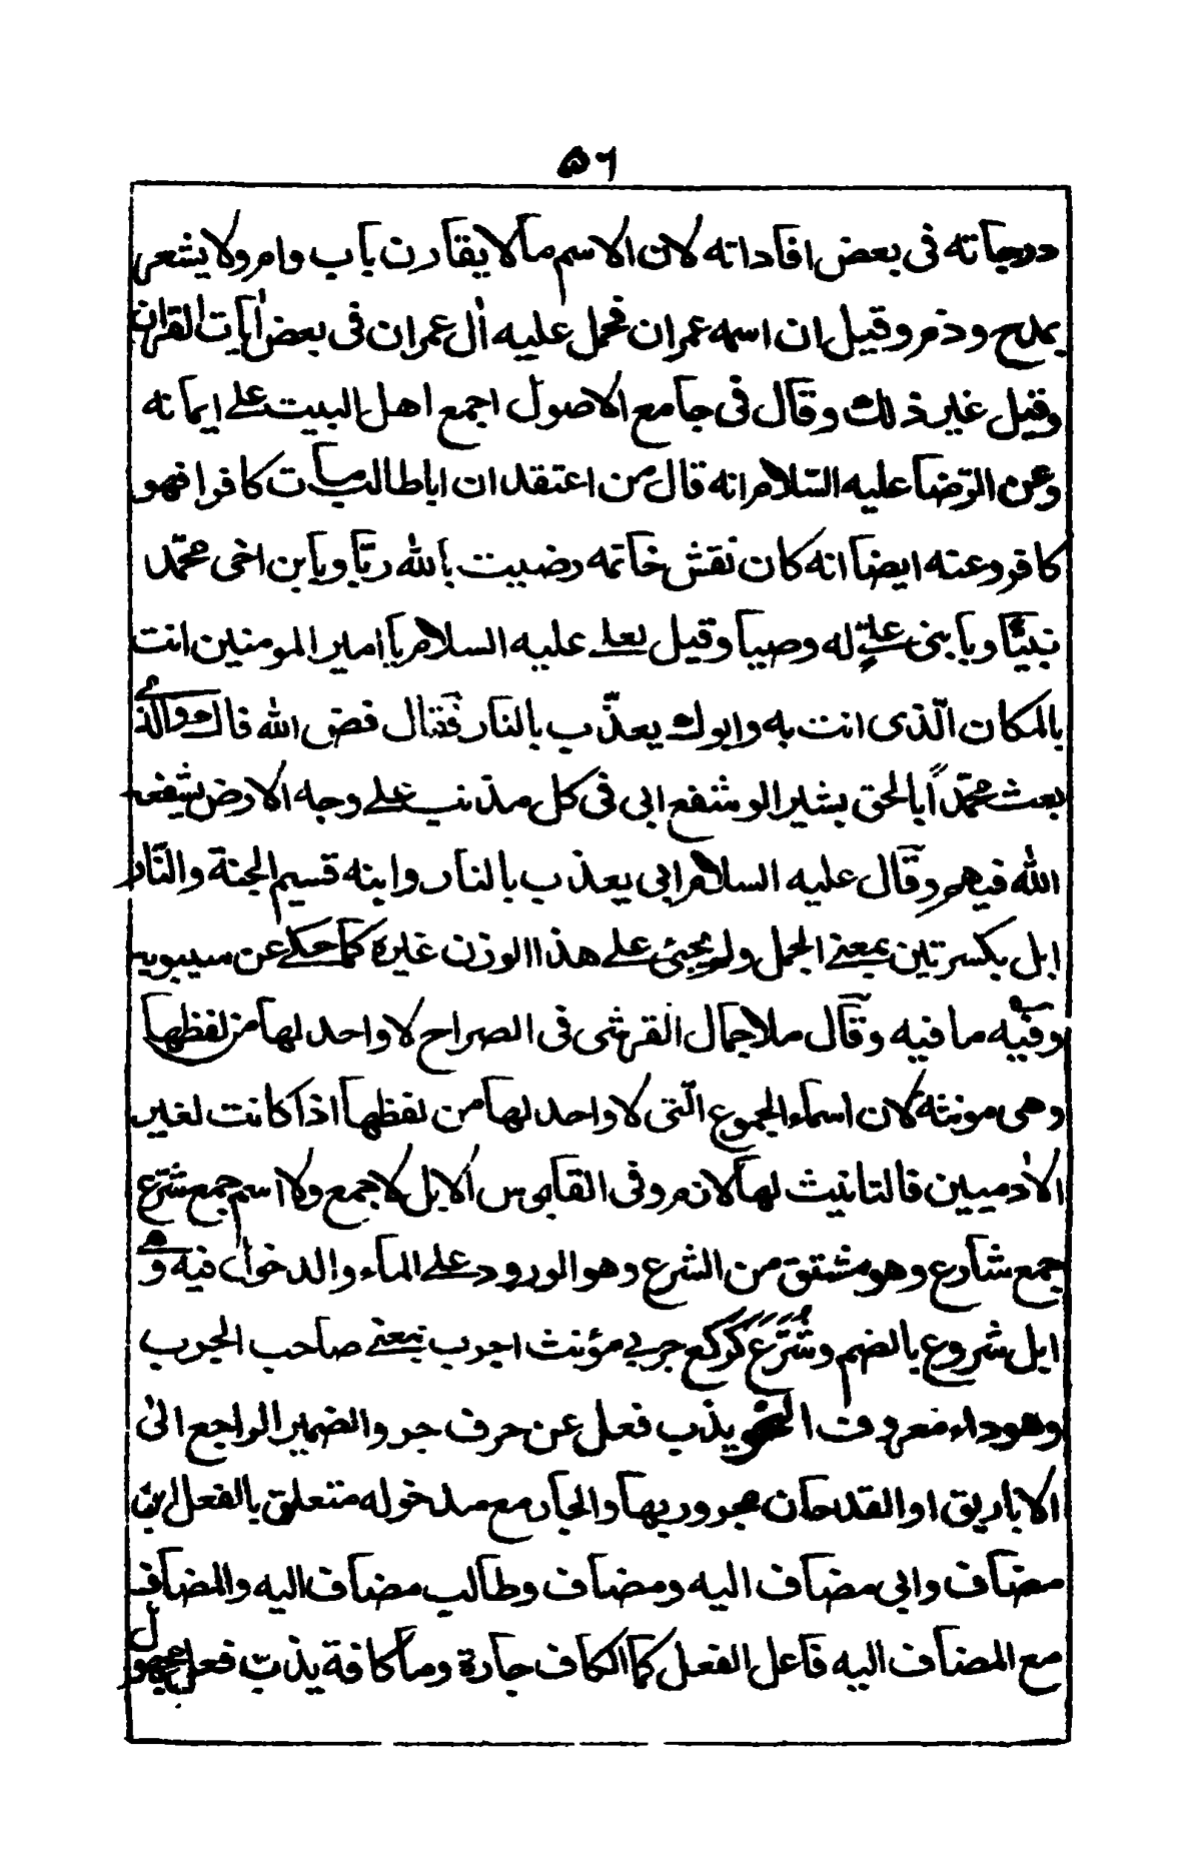 ٥٦
درجاته فى بعض افاداته لان الاسم مالا يقارن باب وام ولا يشعر
بمدح وذم وقيل ان اسمه عمران فحمل عليه اٰل عمران فى بعض اٰيات القراٰن
وقيل غير ذلك وقال فى جامع الاصول اجمع اهل البيت على ايمانه
وعن الرّضا عليه السّلام انه قال من اعتقد ان اباطالب مات كافرا فهو
كافر وعنه ايضا انه كان نقش خاتمه رضيت بالله ربّا وبابن اخى محمّد
نبيّا وبابنى علىّ له وصيا وقيل لعلى عليه السلام يا امير المومنين انت
بالمكان الّذى انت به وابوك يعذّب بالنار فقال فض الله فاك والّذى
بعث محمّداً بالحق بشيرا لو شفع ابى فى كل مذنب على وجه الارض يشفعه
الله فيهم وقال عليه السلام ابى يعذب بالنار وابنه قسيم الجنة والنّار
ابل بكسرتين بمعنى الجمل ولم يجئ على هذا الوزن غيره كما حكى عن سيبويه
وفيه ما فيه وقال ملا جمال القرشى فى الصراح لا واحد لها من لفظها
وهى مونثة لان اسماء الجموع الّتى لا واحد لها من لفظها اذا كانت لغير
الاٰدميين فالتانيث لها لازم وفى القاموس الابل لا جمع ولا اسم جمع شرّع
جمع شارع وهو مشتق من الشرع وهو الورود على الماء والدخول فيه و
ابل شروع بالضم وشُرَّع كركع جربى مؤنث اجرب بمعنى صاحب الجرب
وهو داء معروف يذب فعل عن حرف جر والضمير الراجع الىٰ
الاباريق او القدحان مجرور بها والجار مع مدخوله متعلق بالفعل ابن
مضاف وابى مضاف اليه ومضاف وطالب مضاف اليه والمضاف
مع المضاف اليه فاعل الفعل كما الكاف جارة وما كافة يذبّ فعل مجهول